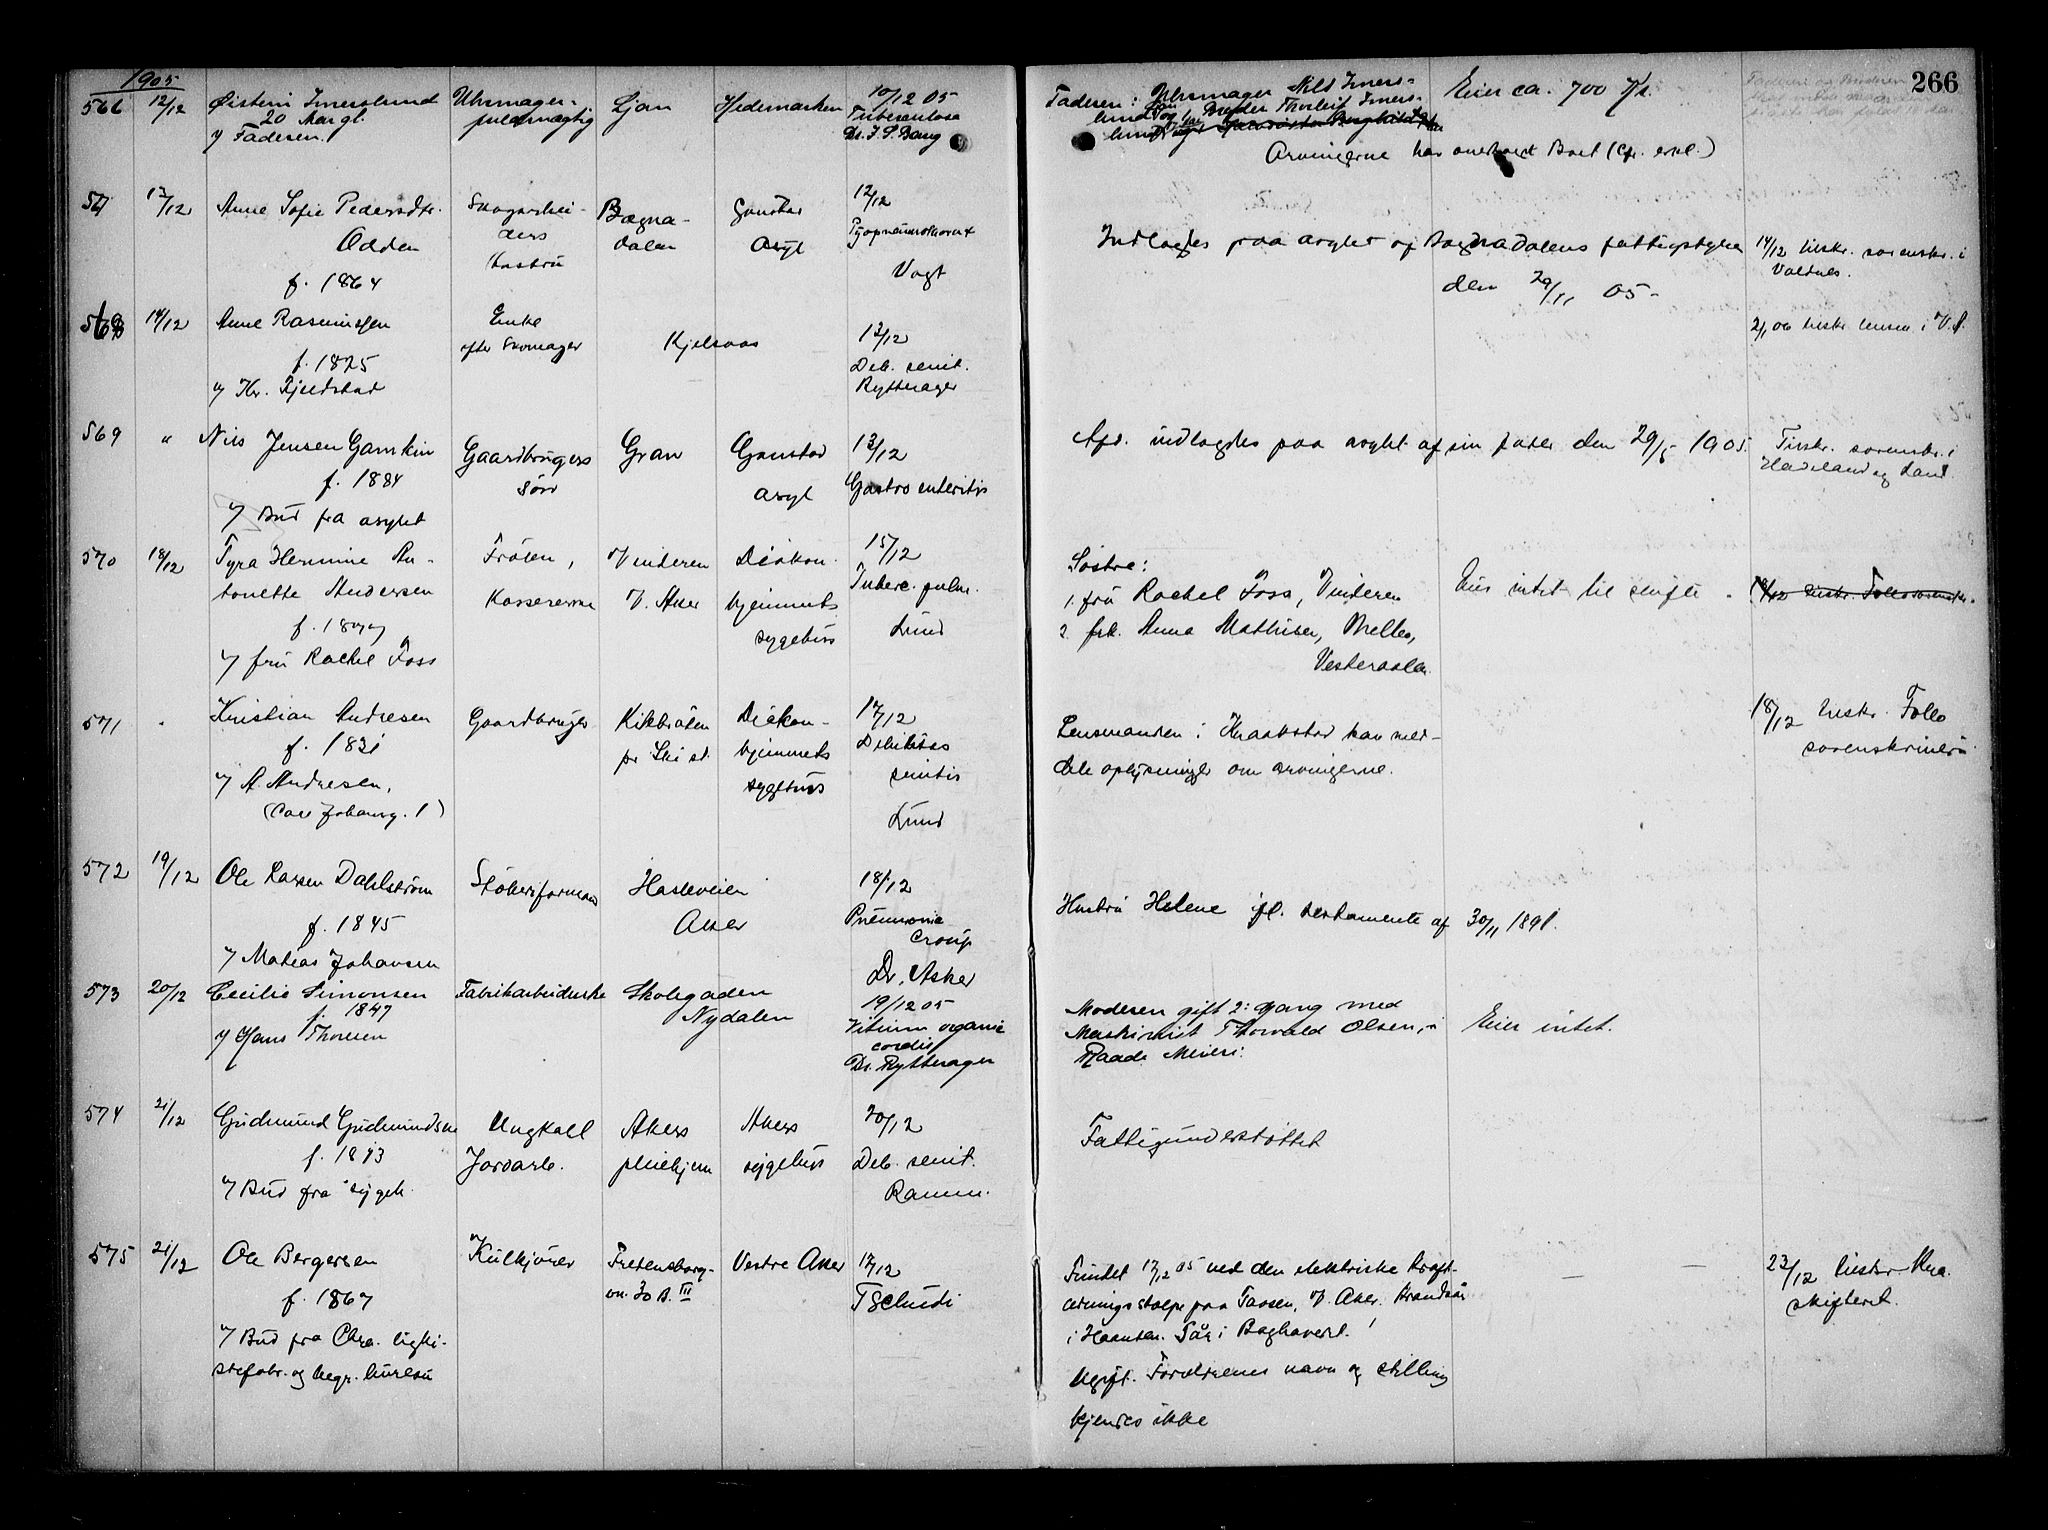 1905
266
566 12/12 Øistein Imerslund Uhrmager- Ljan Hedemarken 10/12 05
20 Aar gl. fuldmægtig Tuberculose
v/ Faderen. Dr. I. S. Bang
Faderen: Uhrmager Nils Imers- Eier ca. 700 Kr.
lund og Broder Thorleif Imers-
lund
Arvingerne har overtaget Boet (cfr. erkl.)
567 13/12 Anne Sofie Pedersdtr. Skogarbei- Bægna- Gaustad 12/12
Odden ders dalen Asyl Pyopneumothorax
f. 1864 hustru Vogt
Indlagdes paa asylet af Bagnadalens fattigstyre 14/12 tilskr. sorenskr. i
den 29/11 05- Valdres.
568 14/12 Anne Rasmussen Enke Kjelsaas 13/12
f. 1825 efter Skomager Deb. senil.
v/ Kr. Fjeldstad Rytterager
2/1 06 tilskr. lensm. i V. A.
569 " Nils Jensen Gamkin Gaardbrugers Gran Gaustad 13/12
f. 1884 søn asyl Gastro enteritis
v/ Bud fra asylet
Afd. indlagdes paa asylet af sin fader den 29/5 1905. Tilskr. sorenskr. i
Hadeland og Land
570 18/12 Tyra Hermine An- Frøken, Vinderen Diakon- 15/12
tonette Andersen Kassererske V. Aker hjemmets Tuberc. pulm.
f. 1877 sygehus Lund
v/ fru Rachel Foss
Søstre:
1. fru Rachel Foss, Vinderen Eies intet til skifte. 18/12 tilskr. Follo sorenskr.
2. frk. Anna Mathisen, Melbo,
Vesteraalen.
571 Kristian Andresen Gaardbruger Kikbraaten Diakon- 17/12
f. 1821 pr Ski st. hjemmets Debilitas
v/ A. Andresen, sygehus senilis
(Carl Johansg. 1) Lund
Lensmanden i Kraakstad kan med- 18/12 tilskr. Follo
dele oplysninger om arvingerne. sorenskriveri
572 19/12 Ole Larsen Dahlstrøm Støberiformand Hasleveien 18/12
f. 1845 Aker Pneumonia
v/ Mathias Johansen croup
Dr. Asker
Hustru Helene ifl. testamente af 30/11 1891.
573 20/12 Cecilie Simonsen Fabrikarbeiderske Skolegaden 19/12 05
f. 1847 Nydalen Vitium organic
v/ Hans Thoresen cordis
Dr. Rytterager
Moderen gift 2: gang med
Maskinist Thorvald Olsen, Eier intet.
Raade Meieri.
574 21/12 Gudmund Gudmundsen Ungkarl Akers Akers 20/12
f. 1813 Jordarb. pleiehjem sygehus Deb. senil.
v/ Bud fra sygeh. Ramm.
Fattigunderstøttet
575 21/12 Ole Bergersen Kulkjører Fredensborg- Vestre Aker 17/12
f. 1867 vn. 30 B. III Tschudi
v/ Bud fra Chra. ligki-
stefabr. og begr. bureau
Fundet 17/12 05 ved den elektriske Kraft- — — 23/12 tilskr. Kra.
ledningsstolpe paa Taasen, V. Aker. Brandsår skifteret.
i Haanden. Sår i Baghoved.
Ugift. Forældrenes navn og stilling
kjendes ikke